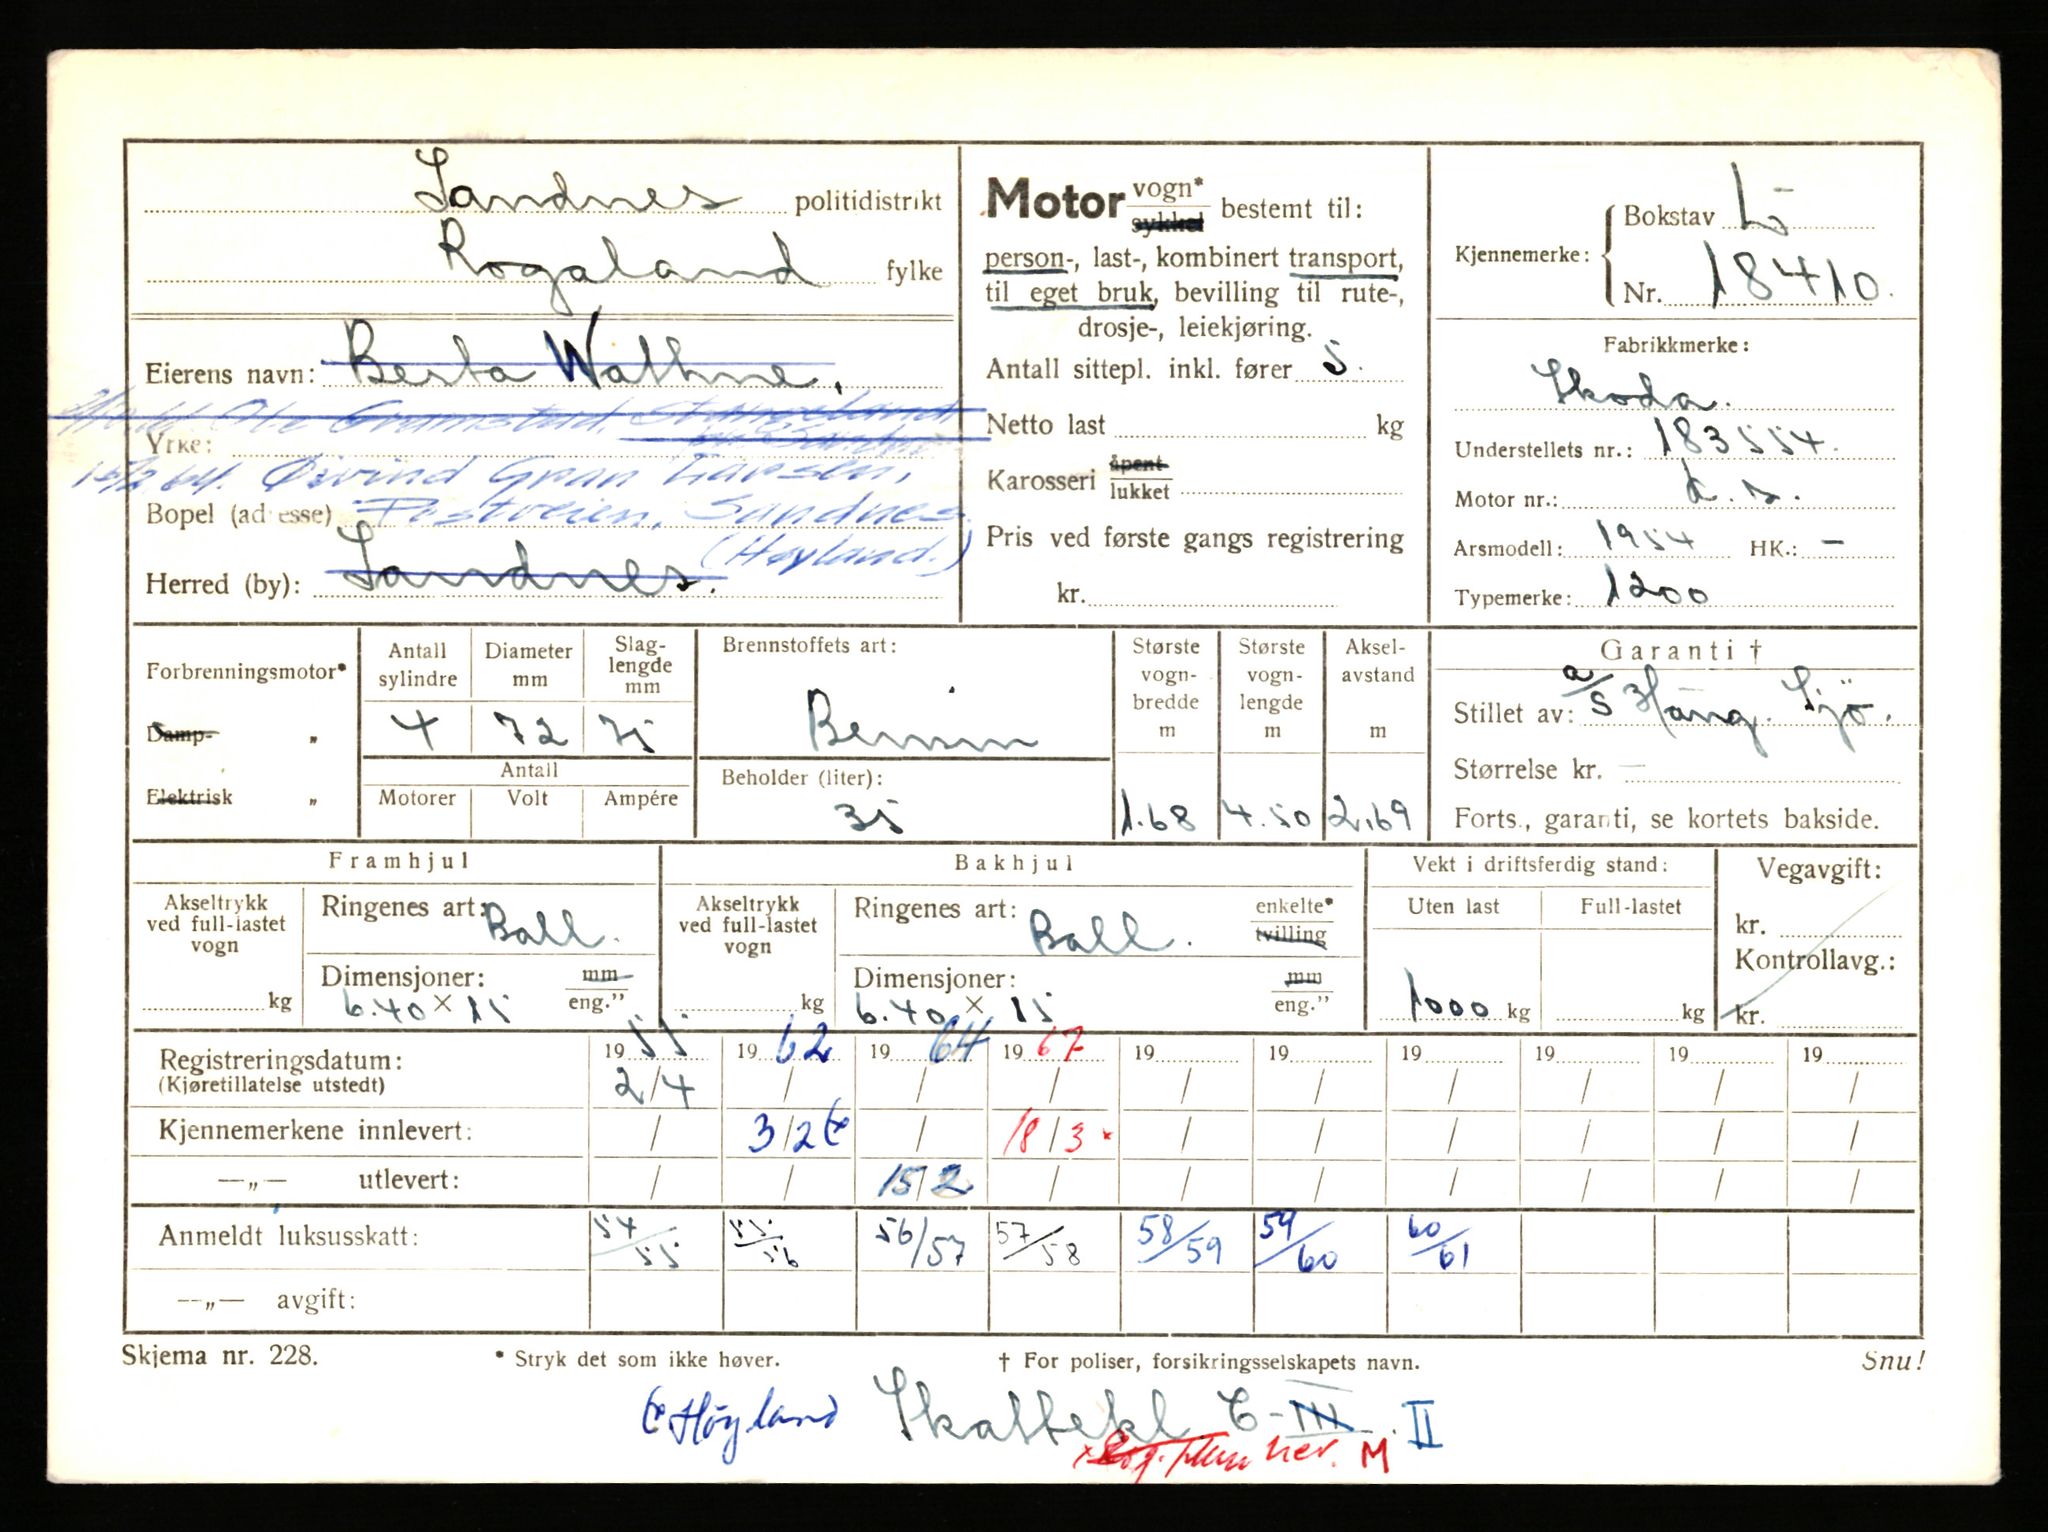 Sandnes politidistrikt
Rogaland fylke
Eierens navn: Berta Wathne.
Ole Gramstad, Stangeland
Yrke: Sandnes
15/2 64. Øivind Gran Larsen,
Bopel (adresse) Postveien, Sandnes.
(Høyland.)
Herred (by): Sandnes.
Motor vogn* sykkel bestemt til:
person-, last-, kombinert transport,
til eget bruk, bevilling til rute-,
drosje-, leiekjøring.
Antall sittepl. inkl. fører 5.
Netto last kg
Karosseri åpent lukket
Pris ved første gangs registrering
kr.
Kjennemerke: Bokstav L-
Nr. 18410.
Fabrikkmerke:
Skoda.
Understellets nr.: 183554.
Motor nr.: d.s.
Arsmodell: 1954 HK.: –
Typemerke: 1200
Forbrenningsmotor*
Damp- „
Elektrisk „
Antall sylindre Diameter mm Slag-lengde mm
4 72 75
Antall
Motorer Volt Ampére
Brennstoffets art:
Bensin
Beholder (liter):
35
Største vogn-bredde m Største vogn-lengde m Aksel-avstand m
1.68 4.50 2,69
Garanti †
Stillet av: a/s Hang. Sjö.
Størrelse kr. —
Forts., garanti, se kortets bakside.
Framhjul
Akseltrykk ved full-lastet vogn kg
Ringenes art: Ball.
Dimensjoner: mm eng."
6.40 × 15
Bakhjul
Akseltrykk ved full-lastet vogn kg
Ringenes art: Ball. enkelte* tvilling
Dimensjoner: mm eng."
6.40 × 15
Vekt i driftsferdig stand:
Uten last Full-lastet
1000 kg kg
Vegavgift:
kr.
Kontrollavg.:
kr.
Registreringsdatum: 19 55 19 62 19 64 19 67 19 19 19 19 19 19
(Kjøretillatelse utstedt) 2/4 / / / / / / / / /
Kjennemerkene innlevert: / 3/2 (x / 18/3 x / / / / / /
—„— utlevert: / / 15/2 / / / / / / /
Anmeldt luksusskatt: 54/55 55/56 56/57 57/58 58/59 59/60 60/61
—„— avgift:
Skjema nr. 228. * Stryk det som ikke høver. † For poliser, forsikringsselskapets navn. Snu!
(x Höyland Skattekl. C-III. II
x her. M